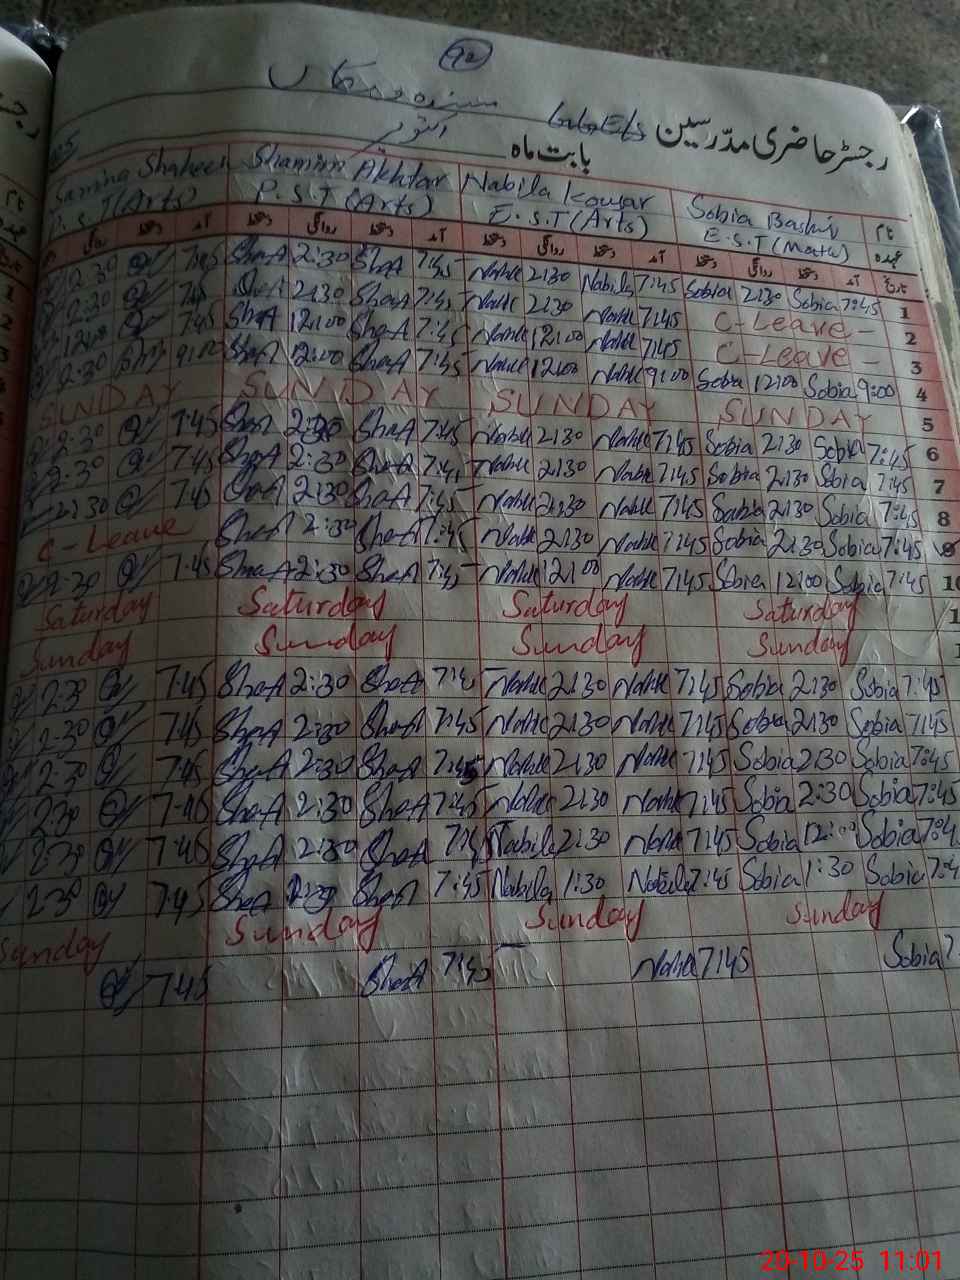 92
رجسٹر حاضری مدرسین GGES
بابت ماہ اکتوبر
Samina Shaheen Shamim Akhtar Nabila Kousar Sobia Bashir نام
P.S.T (Arts) P.S.T (Arts) E.S.T (Arts) E.S.T (Math) عہدہ
روانگی دستخط آمد دستخط روانگی دستخط آمد دستخط روانگی دستخط آمد دستخط روانگی دستخط آمد تاریخ
2:30 7:45 ShaA 2:30 ShaA 7:45 Nabil 2:30 Nabila 7:45 Sobia 2:30 Sobia 7:45 1
2:30 7:45 ShaA 2:30 ShaA 7:45 Nabil 2:30 Nabil 7:45 C-Leave - 2
12:00 7:45 ShaA 12:00 ShaA 7:45 Nabil 12:00 Nabil 7:45 C-Leave - 3
2:30 9:00 ShaA 12:00 ShaA 7:45 Nabil 12:00 Nabil 9:00 Sobia 12:00 Sobia 9:00 4
SUNDAY SUNDAY SUNDAY SUNDAY 5
2:30 7:45 ShaA 2:30 ShaA 7:45 Nabil 2:30 Nabil 7:45 Sobia 2:30 Sobia 7:45 6
2:30 7:45 ShaA 2:30 ShaA 7:45 Nabil 2:30 Nabil 7:45 Sobia 2:30 Sobia 7:45 7
2:30 7:45 ShaA 2:30 ShaA 7:45 Nabil 2:30 Nabil 7:45 Sobia 2:30 Sobia 7:45 8
C-Leave ShaA 2:30 ShaA 7:45 Nabil 2:30 Nabil 7:45 Sobia 2:30 Sobia 7:45 9
2:30 7:45 ShaA 2:30 ShaA 7:45 Nabil 12:00 Nabil 7:45 Sobia 12:00 Sobia 7:45 10
Saturday Saturday Saturday Saturday 1
Sunday Sunday Sunday Sunday 1
2:30 7:45 ShaA 2:30 ShaA 7:45 Nabil 2:30 Nabil 7:45 Sobia 2:30 Sobia 7:45
2:30 7:45 ShaA 2:30 ShaA 7:45 Nabil 2:30 Nabil 7:45 Sobia 2:30 Sobia 7:45
2:30 7:45 ShaA 2:30 ShaA 7:45 Nabil 2:30 Nabil 7:45 Sobia 2:30 Sobia 7:45
2:30 7:45 ShaA 2:30 ShaA 7:45 Nabil 2:30 Nabil 7:45 Sobia 2:30 Sobia 7:45
2:30 7:45 ShaA 2:30 ShaA 7:45 Nabila 2:30 Nabil 7:45 Sobia 12:00 Sobia 7:4
2:30 7:45 ShaA 1:30 ShaA 7:45 Nabila 1:30 Nabila 7:45 Sobia 1:30 Sobia 7:4
Sunday Sunday Sunday Sunday
7:45 ShaA 7:45 Nabil 7:45 Sobia 7
20-10-25 11:01